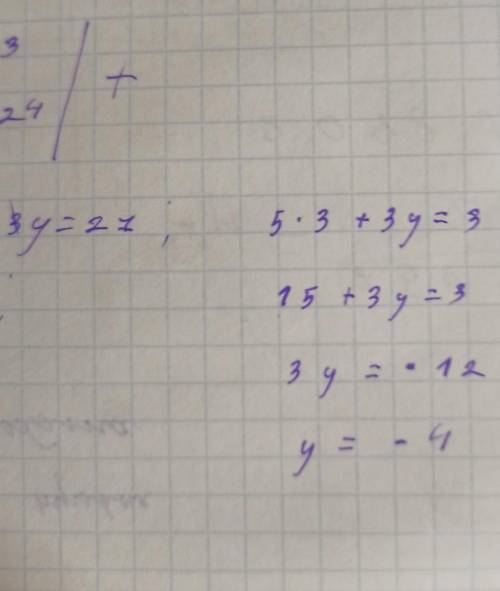 3
24 | +
3y = 27 ;
5 · 3 + 3y = 3
15 + 3y = 3
3y = - 12
y = - 4